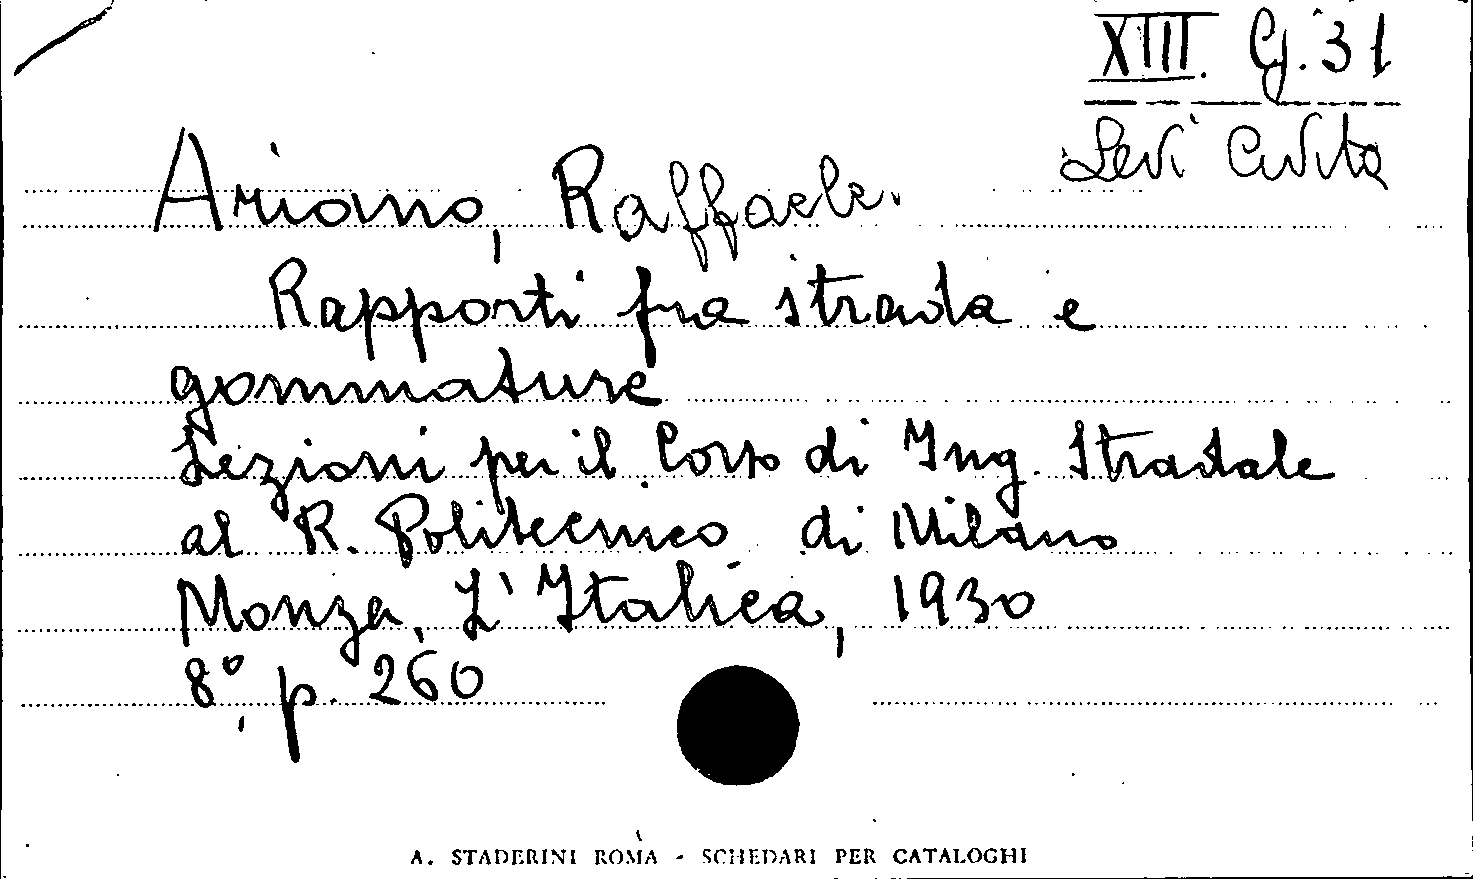 XIII. G. 31
Levi Civita
Ariano, Raffaele.
Rapporti fra strada e
gommature
Lezioni per il Corso di Ing. Stradale
al R. Politecnico di Milano
Monza, L'Italica, 1930
8°, p. 260
A. STADERINI ROMA - SCHEDARI PER CATALOGHI